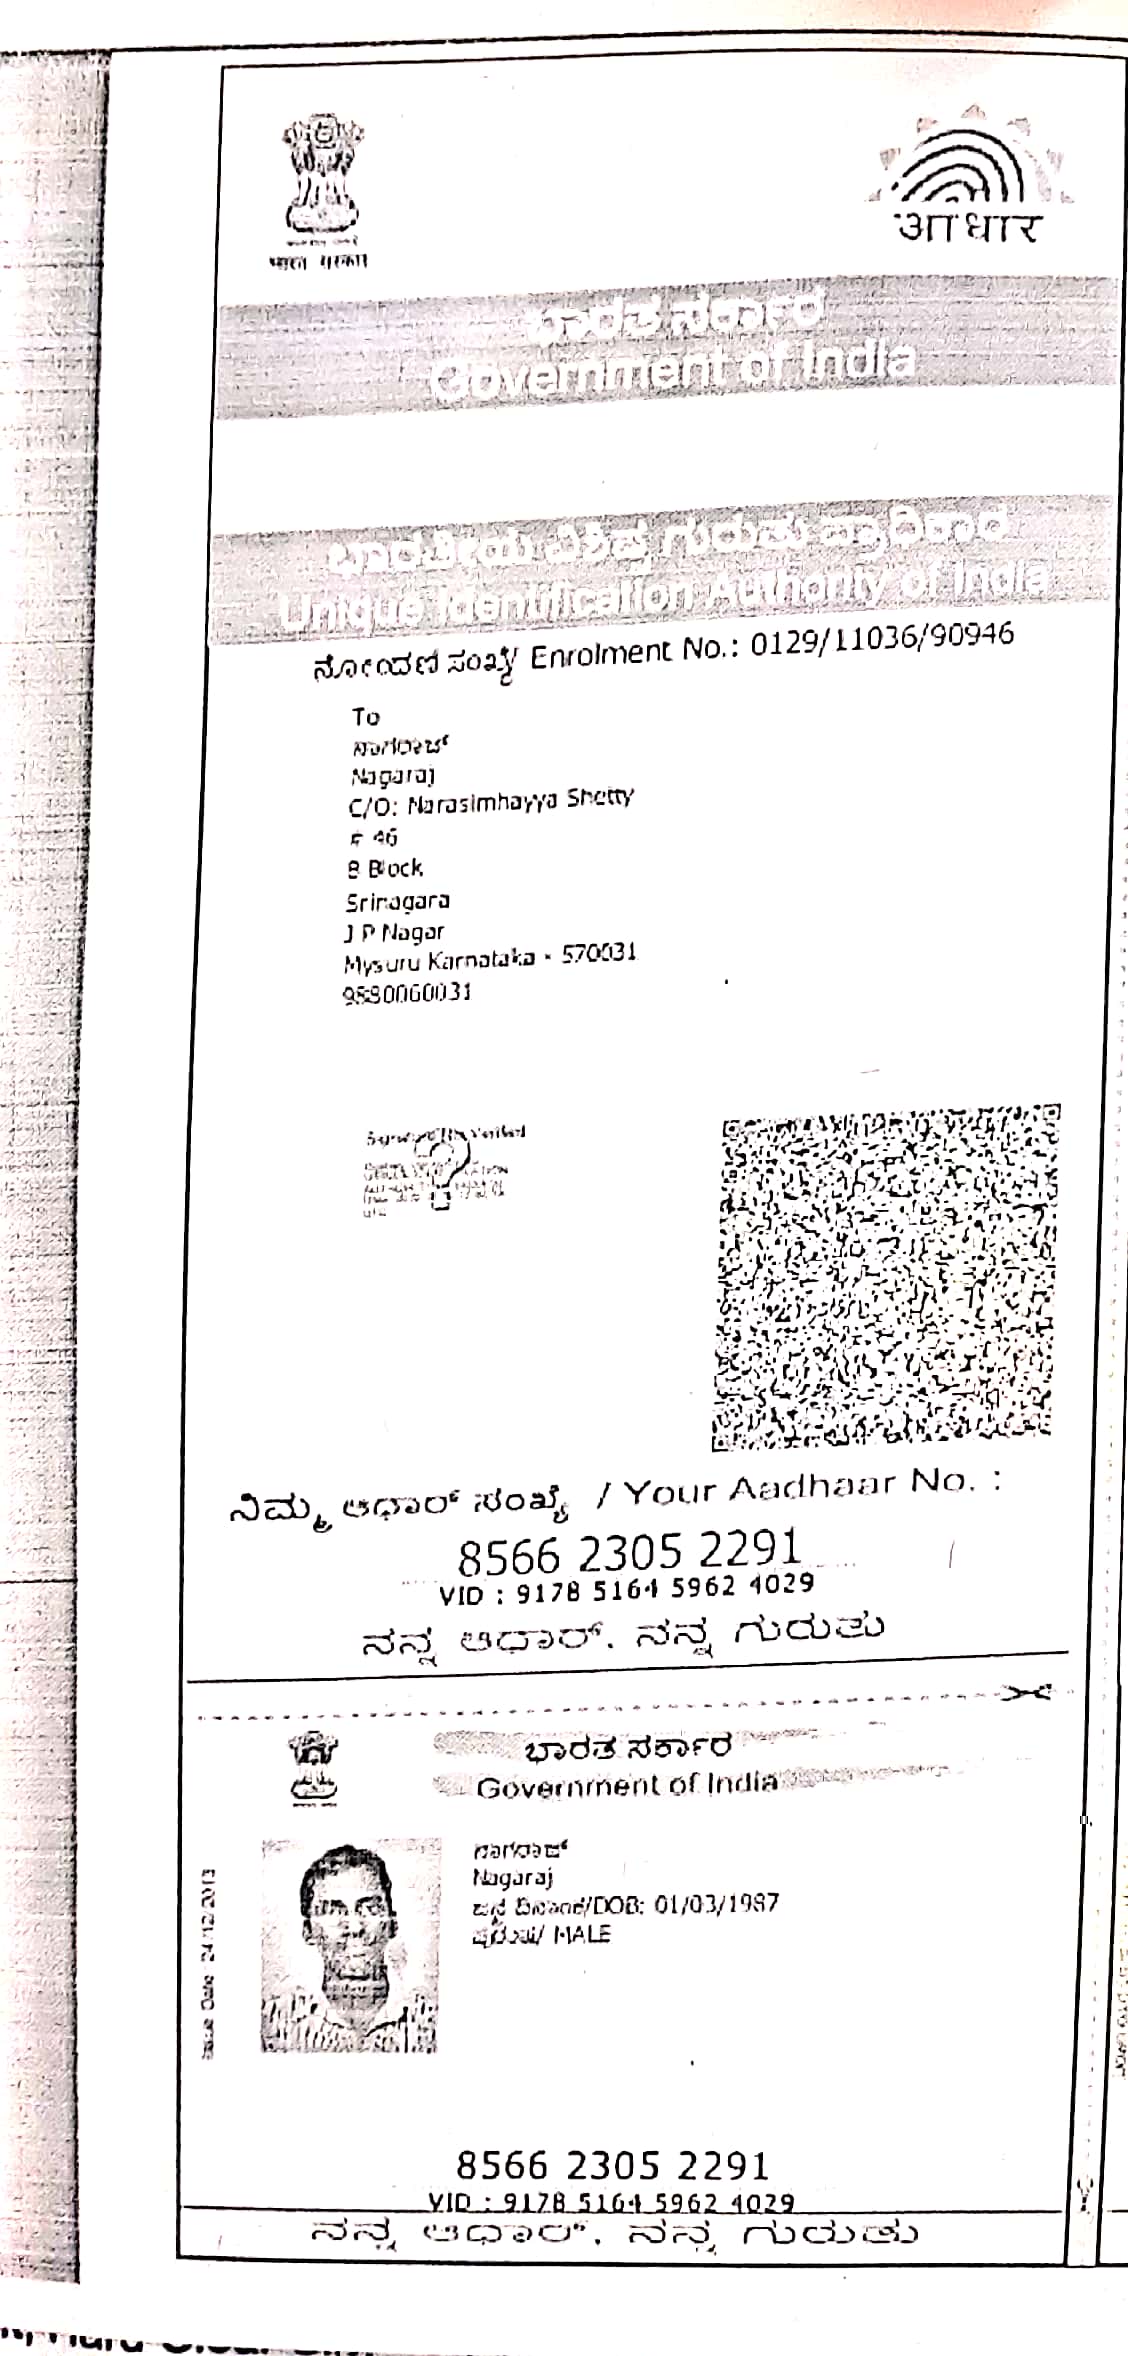 भारत सरकार
आधार
ಭಾರತ ಸರ್ಕಾರ
Government of India
ಭಾರತೀಯ ವಿಶಿಷ್ಟ ಗುರುತು ಪ್ರಾಧಿಕಾರ
Unique Identification Authority of India
ನೋಂದಣಿ ಸಂಖ್ಯೆ/ Enrolment No.: 0129/11036/90946
To
ನಾಗರಾಜ್
Nagaraj
C/O: Narasimhayya Shetty
# 46
B Block
Srinagara
J P Nagar
Mysuru Karnataka - 570031
ನಿಮ್ಮ ಆಧಾರ್ ಸಂಖ್ಯೆ / Your Aadhaar No. :
8566 2305 2291
VID : 9178 5164 5962 4029
ನನ್ನ ಆಧಾರ್, ನನ್ನ ಗುರುತು
ಭಾರತ ಸರ್ಕಾರ
Government of India
ನಾಗರಾಜ್
Nagaraj
ಜನ್ಮ ದಿನಾಂಕ/DOB: 01/03/1987
ಪುರುಷ/ MALE
Issue Date: 24/12/2013
8566 2305 2291
VID : 9178 5164 5962 4029
ನನ್ನ ಆಧಾರ್, ನನ್ನ ಗುರುತು